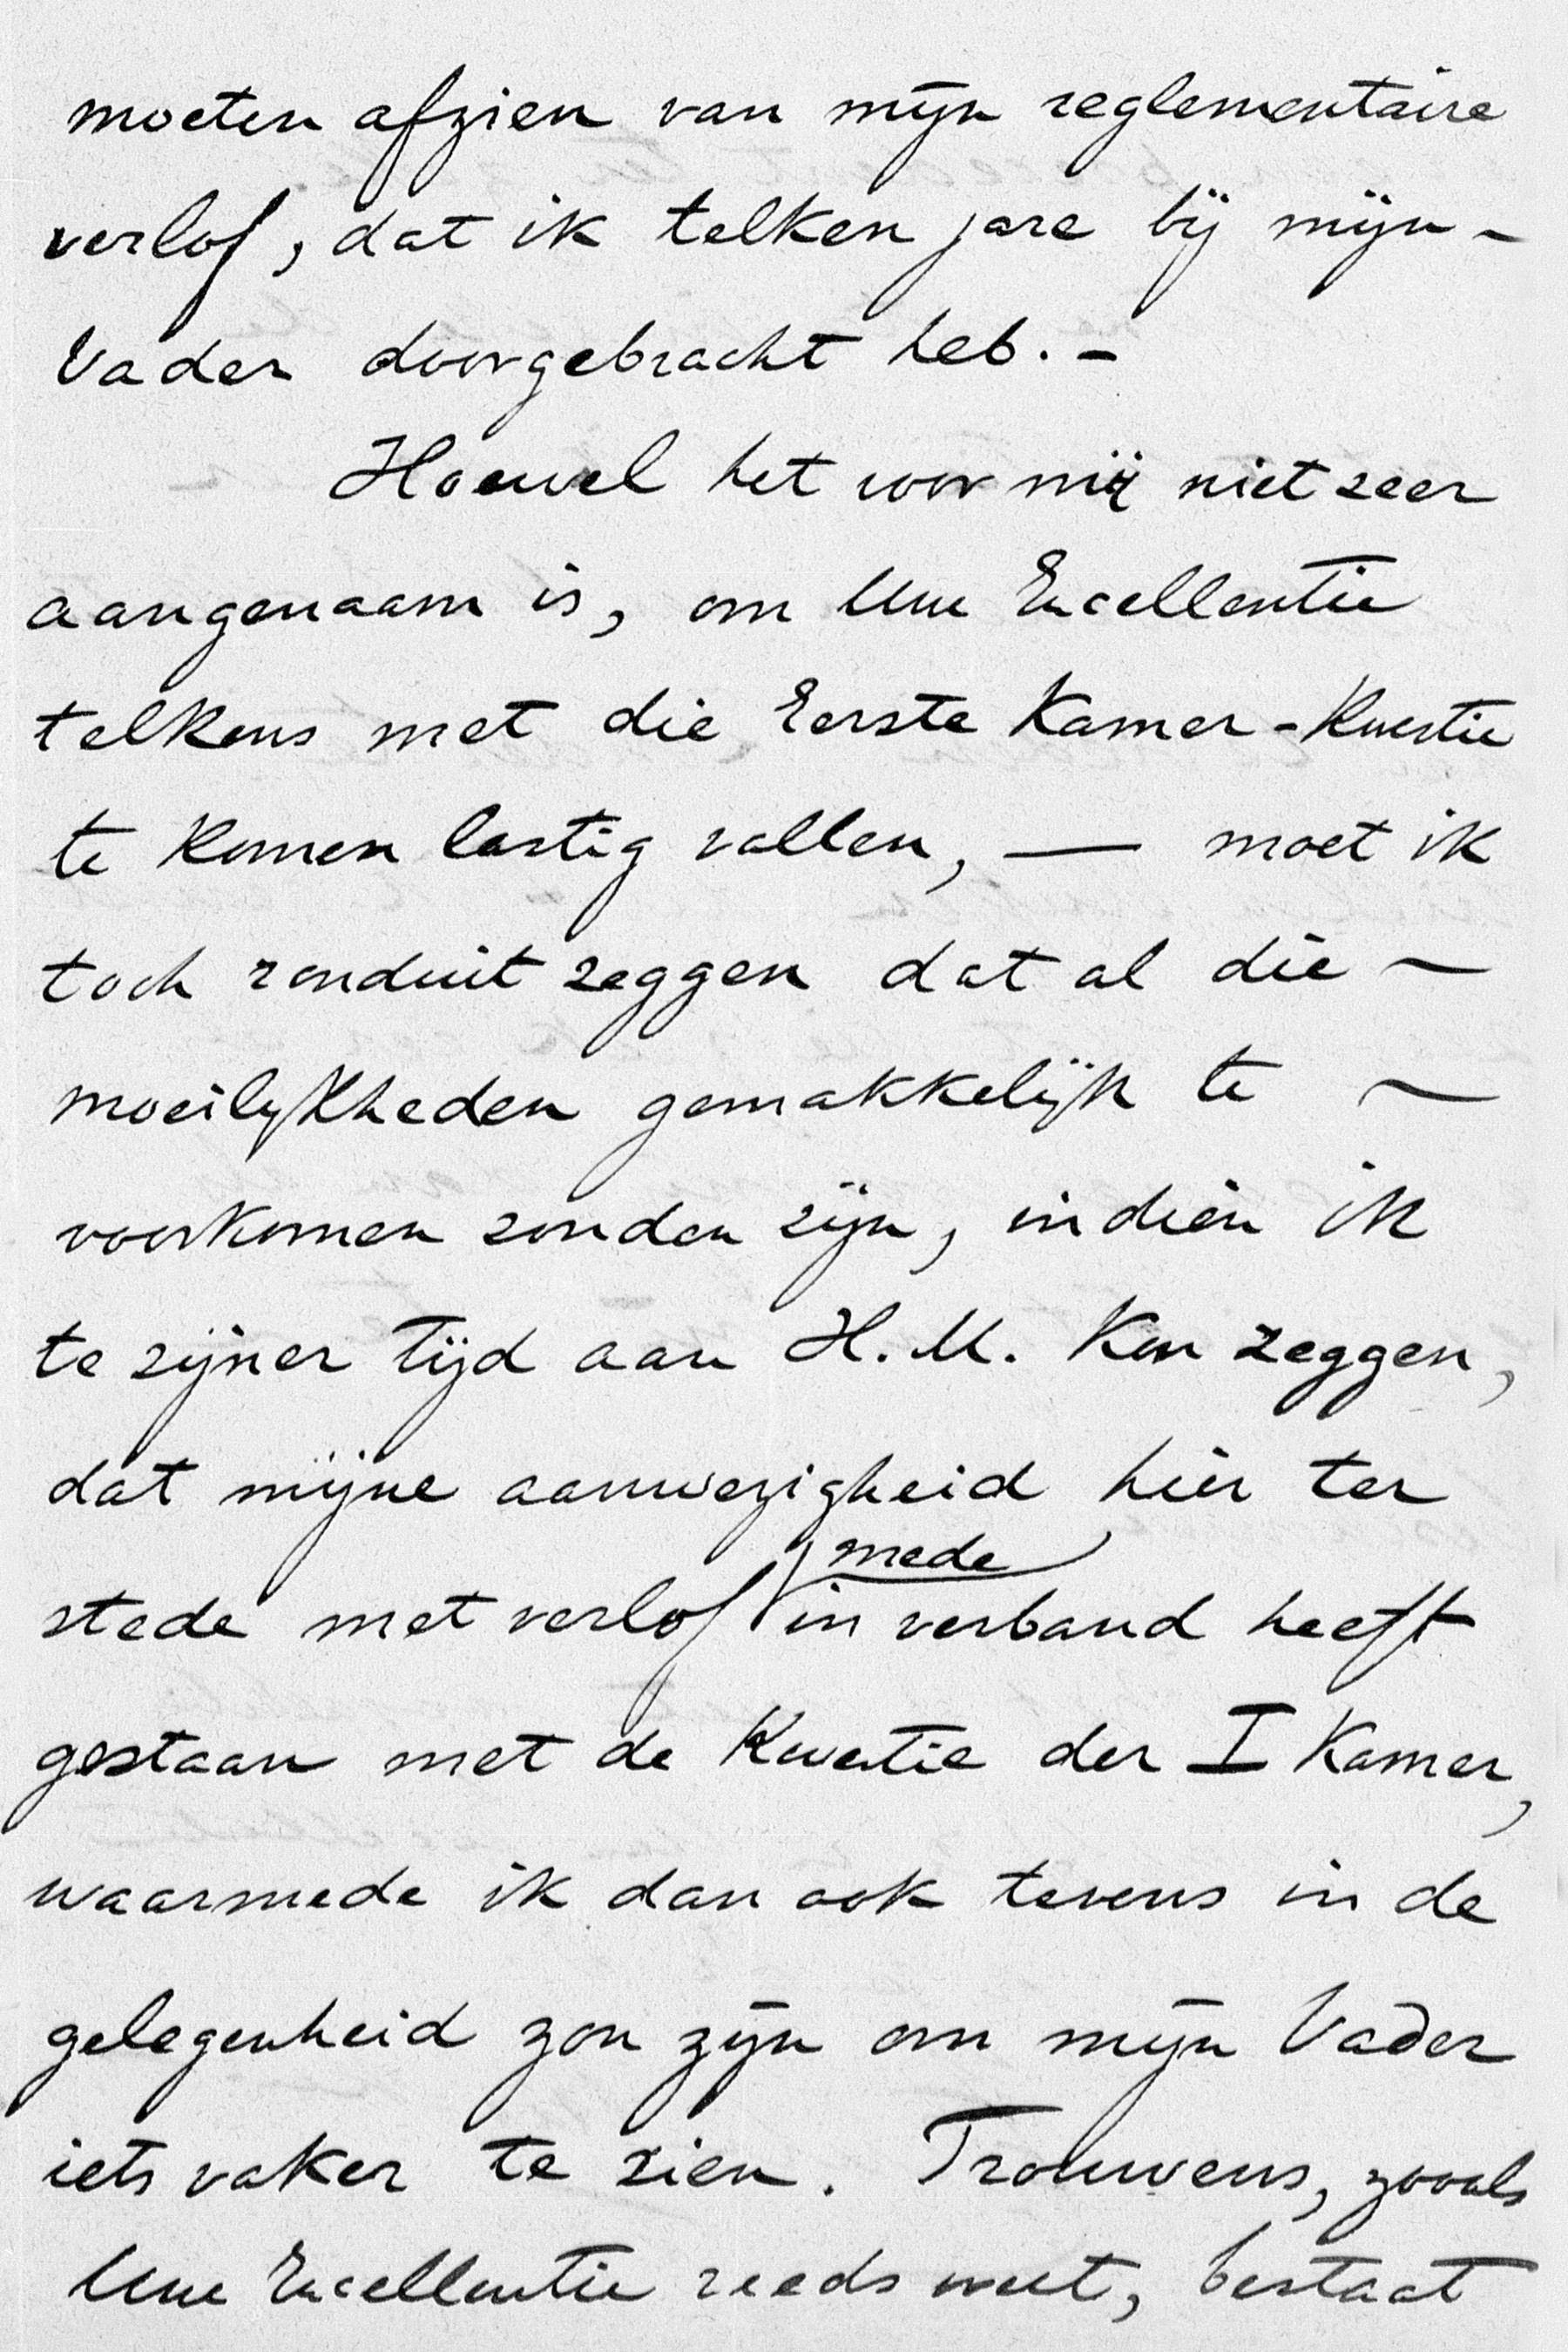 moeten afzien van mijn reglementaire
verlof, dat ik telken jare bij mijn -
Vader doorgebracht heb. -
Hoewel het voor mij niet zeer
aangenaam is, om Uwe Excellentie
telkens met die Eerste Kamer-Kwestie
te komen lastig vallen, — moet ik
toch ronduit zeggen dat al die ~
moeilijkheden gemakkelijk te ~
voorkomen zouden zijn, indien ik
te zijner tijd aan H.M. kon zeggen,
dat mijne aanwezigheid hier ter
mede
stede met verlof in verband heeft
gestaan met de Kwestie der I Kamer,
waarmede ik dan ook tevens in de
gelegenheid zou zijn om mijn Vader
iets vaker te zien. Trouwens, zooals
Uwe Excellentie reeds weet, bestaat